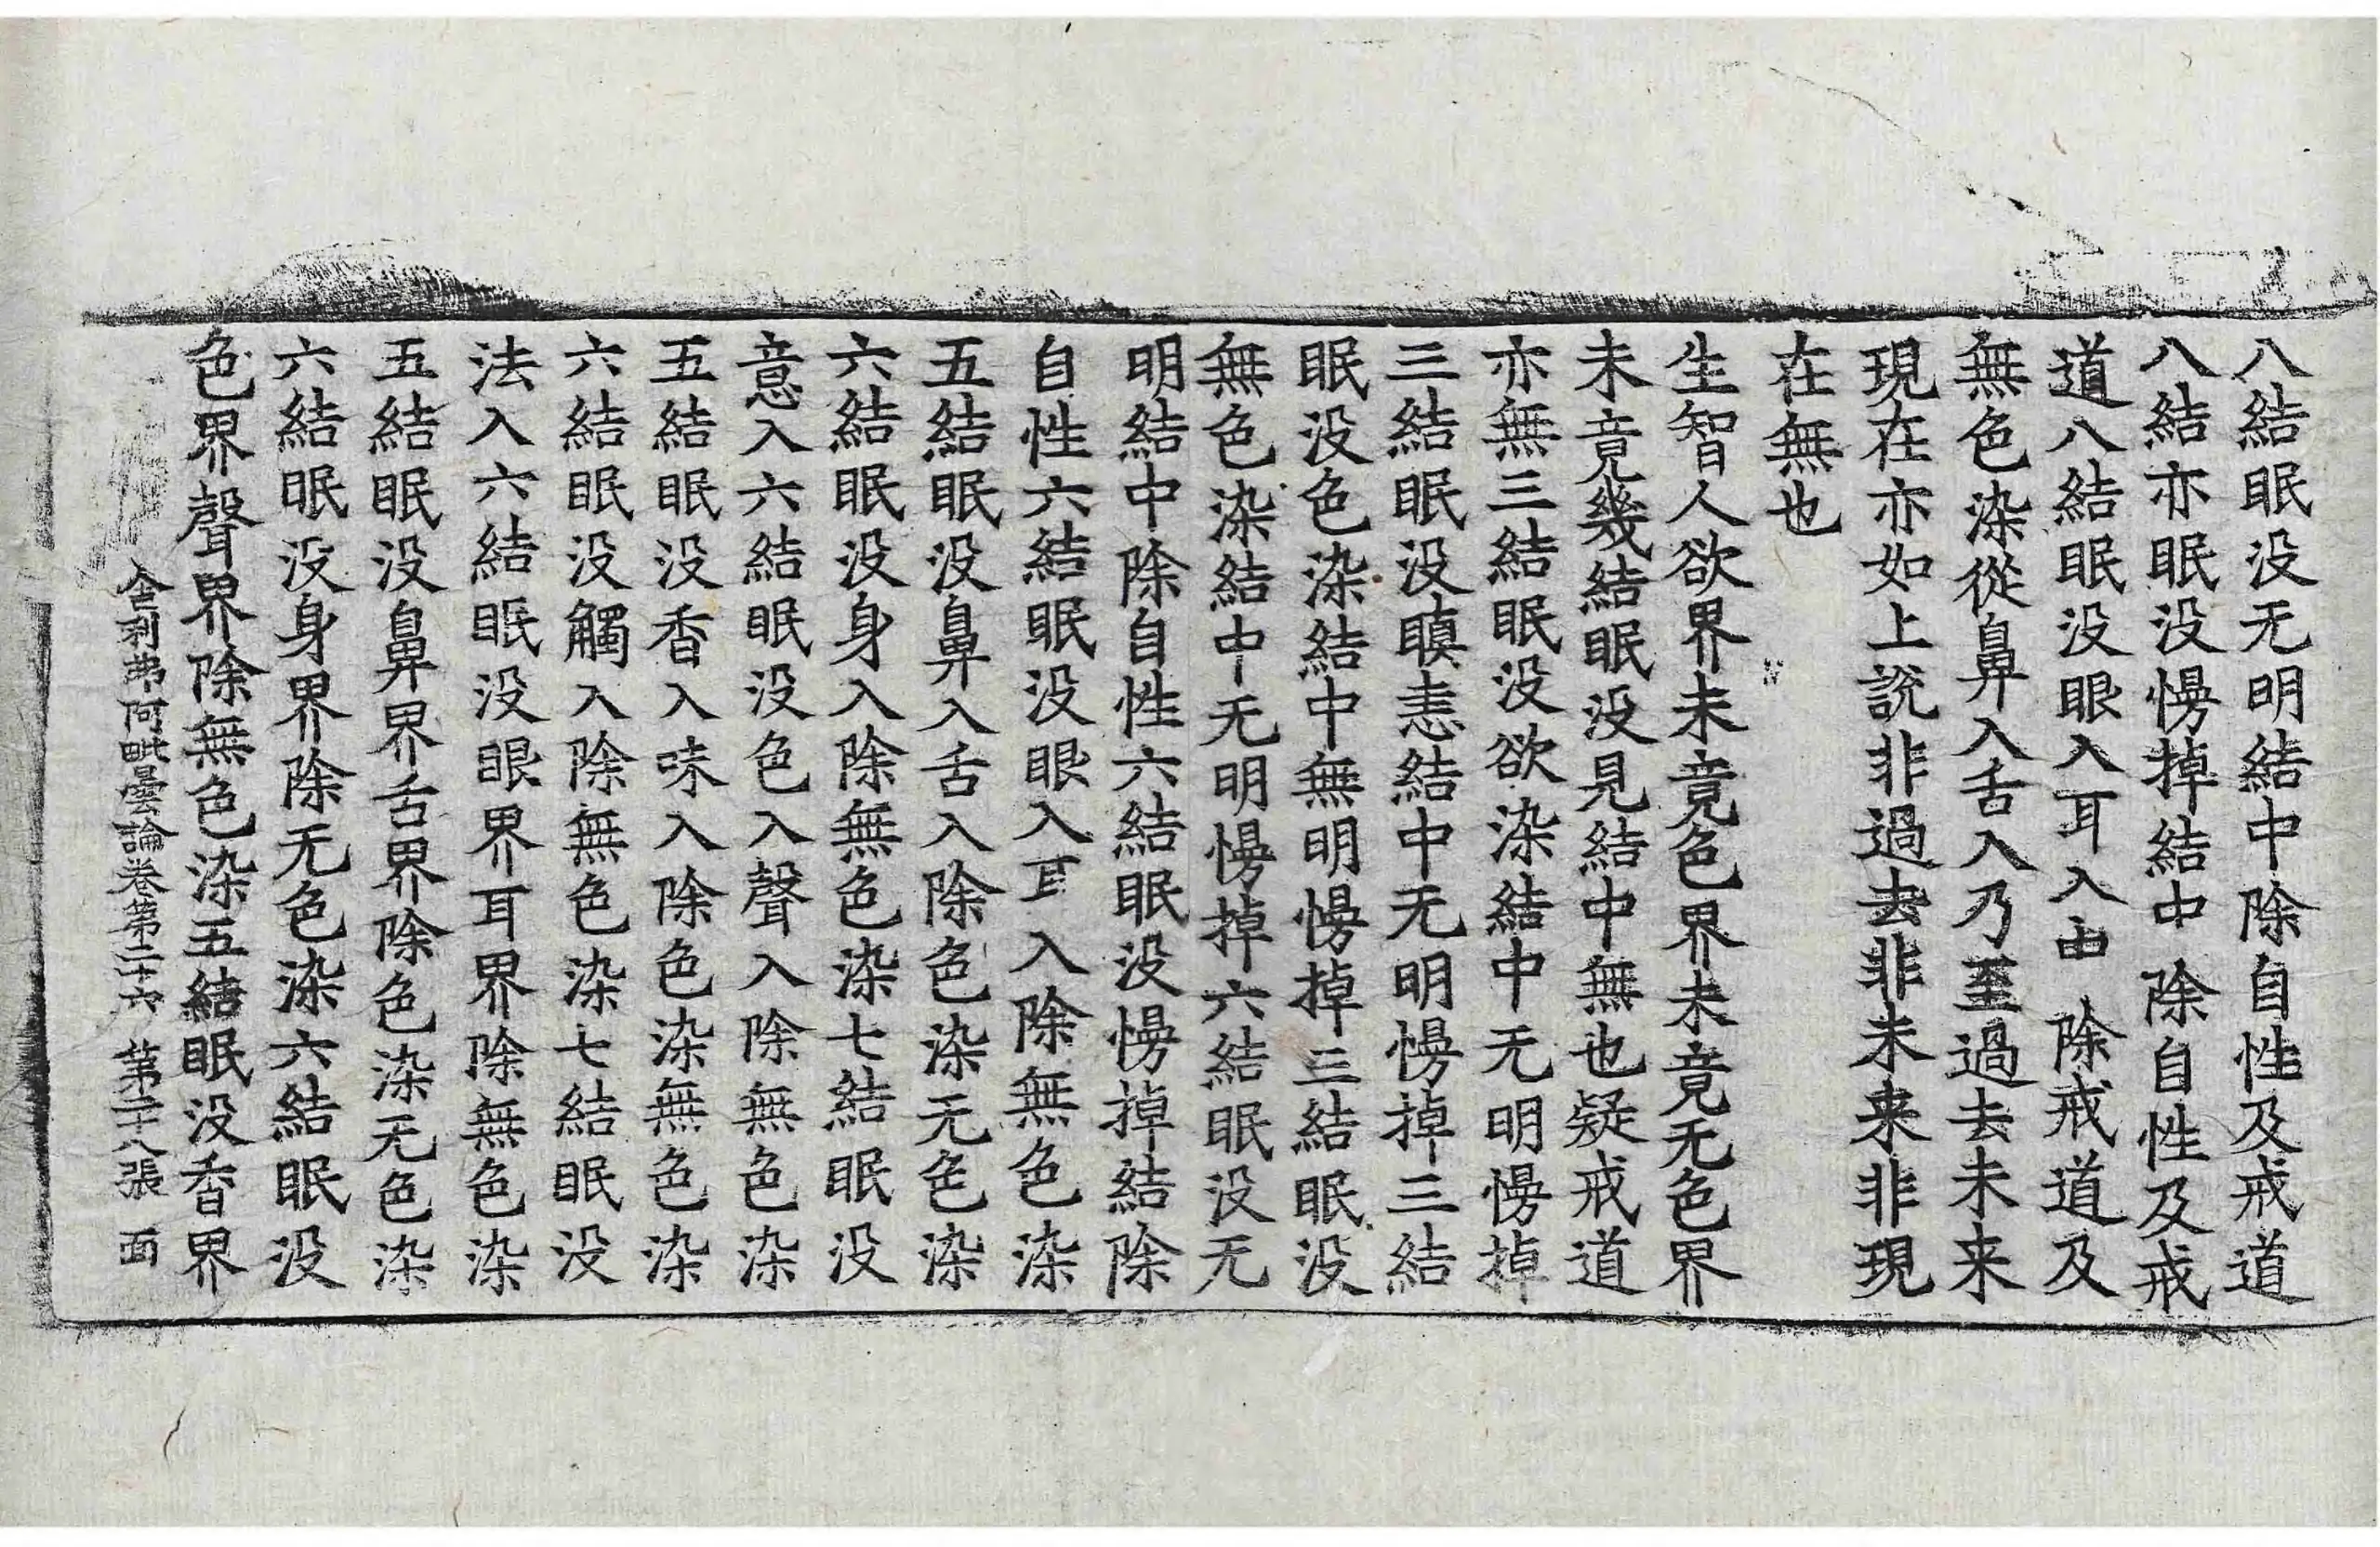 八結眠没无明結中除自性及戒道
八結亦眠没慢掉結中除自性及戒
道八結眠没眼入耳入中除戒道及
無色染從鼻入舌入乃至過去未来
現在亦如上說非過去非未来非現
在無也
生智人欲界未竟色界未竟无色界
未竟幾結眠没見結中無也疑戒道
亦無三結眠没欲染結中无明慢掉
三結眠没瞋恚結中无明慢掉三結
眠没色染結中無明慢掉三結眠没
無色染結中无明慢掉六結眠没无
明結中除自性六結眠没慢掉結除
自性六結眠没眼入耳入除無色染
五結眠没鼻入舌入除色染无色染
六結眠没身入除無色染七結眠没
意入六結眠没色入聲入除無色染
五結眠没香入味入除色染無色染
六結眠没觸入除無色染七結眠没
法入六結眠没眼界耳界除無色染
五結眠没鼻界舌界除色染无色染
六結眠没身界除无色染六結眠没
色界聲界除無色染五結眠没香界
舍利弗阿毗曇論卷第二十六 第二十八張 面